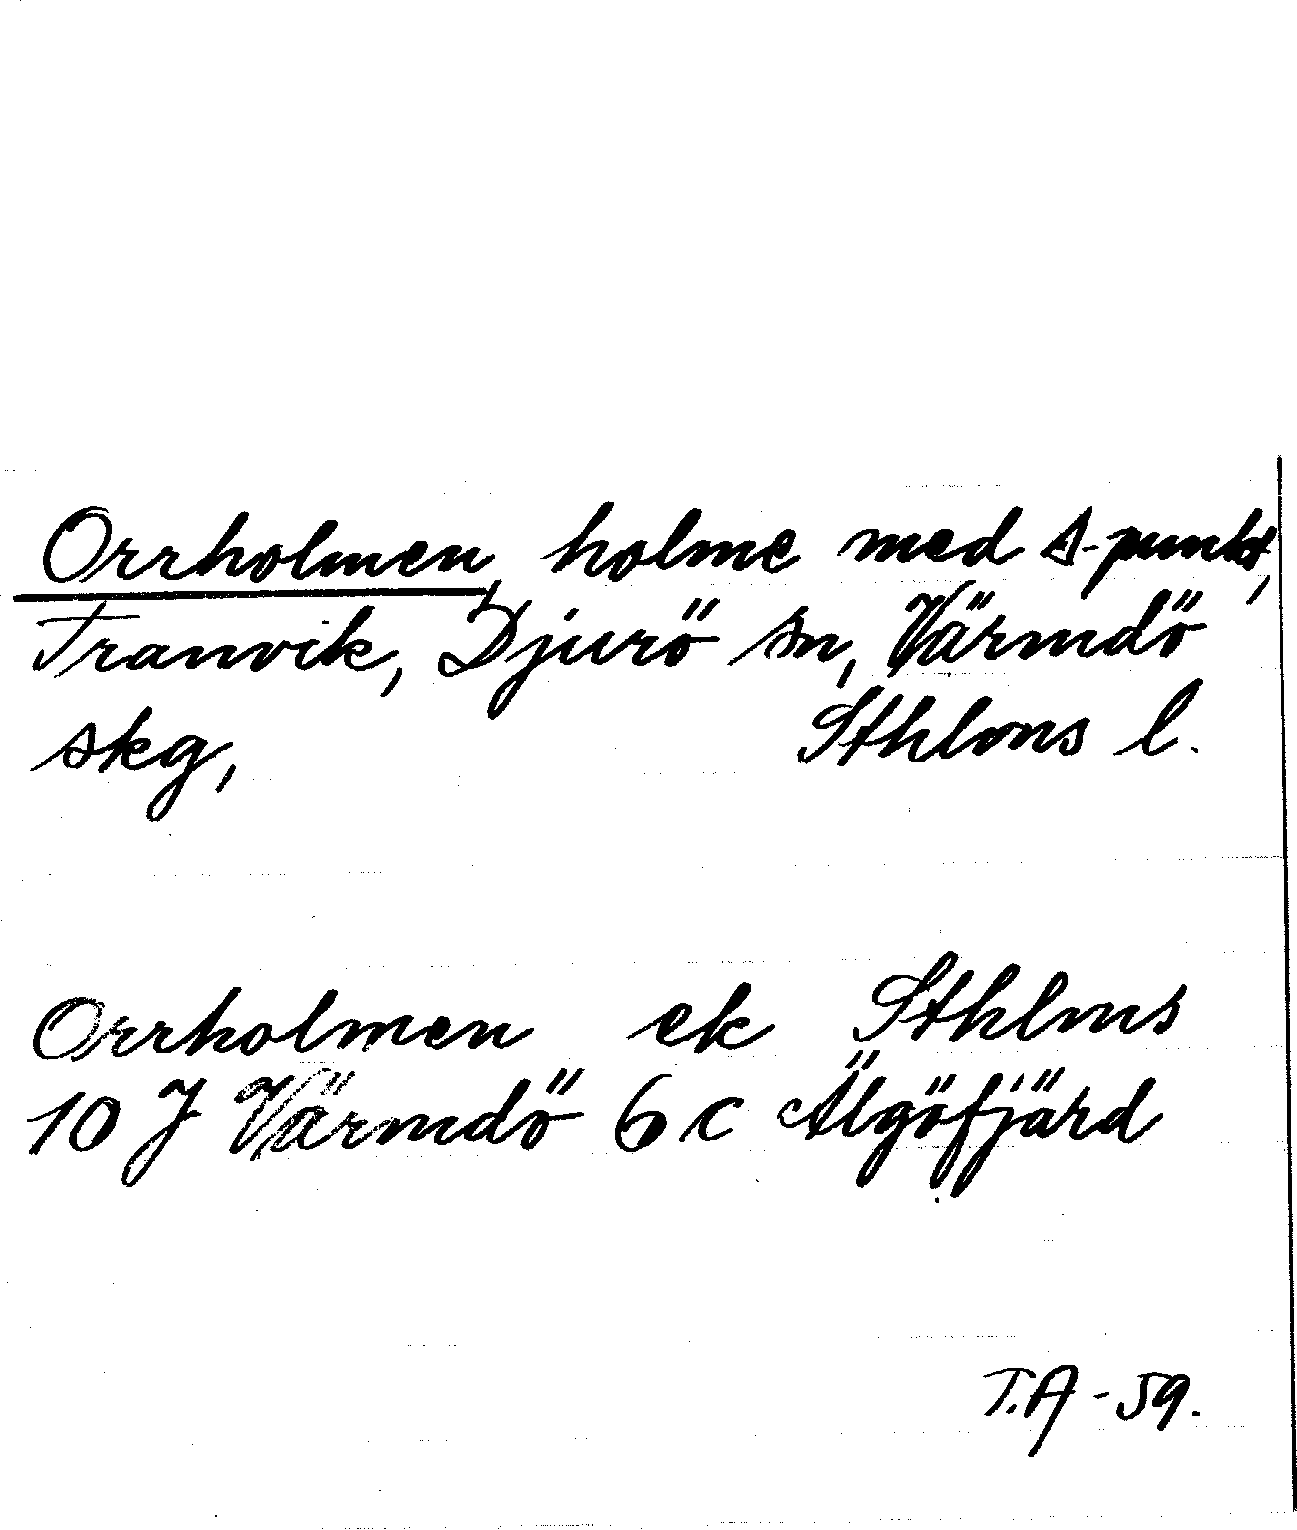 Orrholmen, holme med Δ-punkt,
Tranvik, Djurö sn, Värmdö
skg, Sthlms l.
Orrholmen ek Sthlms
10 J Värmdö 6 c Älgöfjärd
T.A -59.